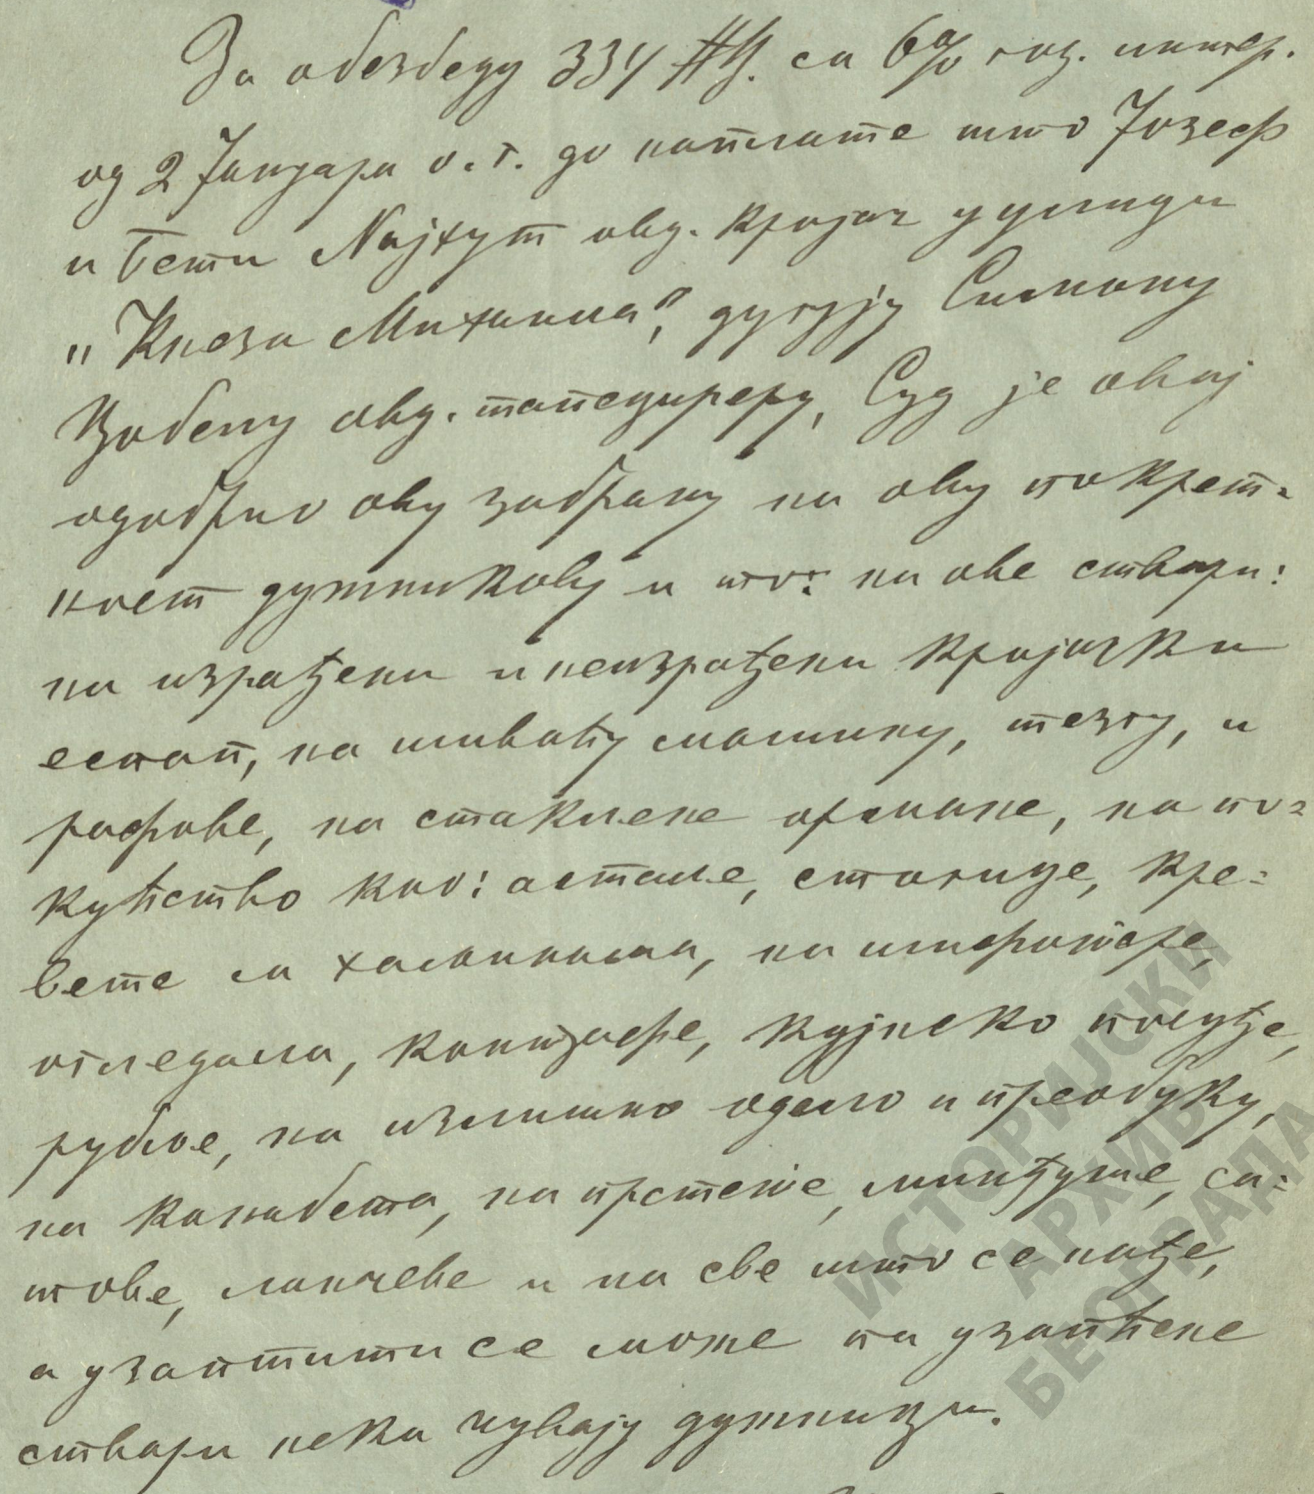 За обезбеду 334 #Ц. са 6% год. интер.
од 2 Јануара о. г. до наплате што Јозеф
и Бети Најхут овд. кројач у улици
„Кнеза Михаила“, дугују Симону
Цобену овд. тапецереру, Суд је овај
одобрио ову забрану на ову покрет-
ност дужникову и то: на ове ствари:
на израђени и неизрађени кројачки
еспап, на шиваћу машину, тезгу, и
рафове, на стаклене ормане, на по-
кућство као: астале, столице, кре-
вете са хаљинама, на шифоњере,
огледала, канцлире, кујнско посуђе,
рубље, на излишно одело и преобуку,
на канабета, на прстење, минђуше, са-
тове, ланчеве и на све што се нађе,
а узаптити се може па узапћене
ствари нека чувају дужници.
ИСТОРИЈСКИ
АРХИВ
БЕОГРАДА